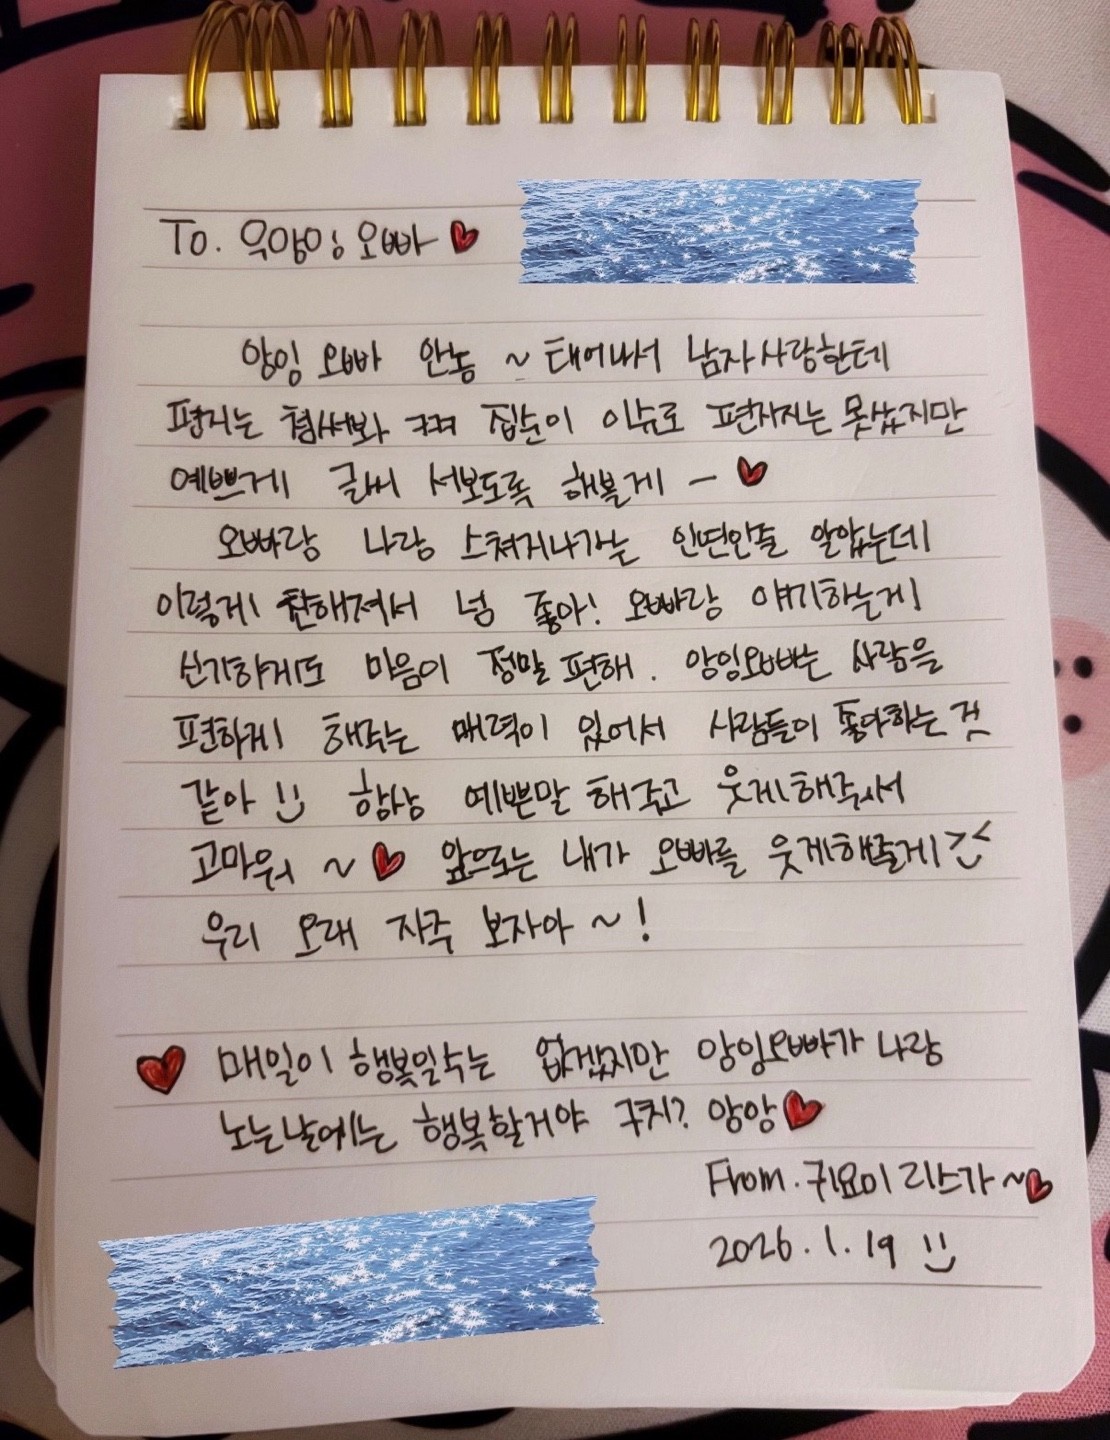 To. 옥앙잉 오빠
앙잉 오빠 안농 ~ 태어나서 남자사람한테
편지는 첨써봐 ㅋㅋ 집순이 이슈로 편지지는 못샀지만
예쁘게 글씨 써보도록 해볼게 -
오빠랑 나랑 스쳐지나가는 인연인줄 알았는데
이렇게 친해져서 넘 좋아! 오빠랑 얘기하는게
신기하게도 마음이 정말 편해. 앙잉오빠는 사람을
편하게 해주는 매력이 있어서 사람들이 좋아하는 것
같아 항상 예쁜말 해주고 웃게해주서
고마워 ~ 앞으로는 내가 오빠를 웃게해줄게 ><
우리 오래 자주 보자아 ~ !
매일이 행복일수는 없겠지만 앙잉오빠가 나랑
노는날에는 행복할거야 구치? 앙앙
From. 귀요미 리스가 ~
2026. 1. 19